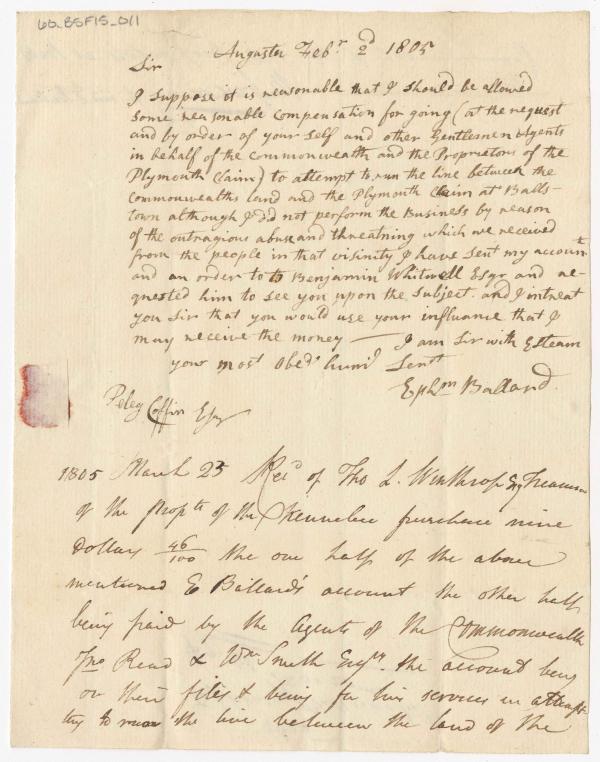 60_BSF15_011
Augusta Febr 2d 1805
Sir
I suppose it is reasonable that I should be allowed
some reasonable compensation for going (at the request
and by order of your self and other Gentlemen Agents
in behalf of the commonwealth and the Proprietors of the
Plymouth Claim) to attempt to run the line between the
commonwealths land and the Plymouth Claim at Balls-
town although I did not perform the Business by reason
of the outragious abuse and threatning which we received
from the people in that visinity I have sent my account
and an order to to Benjamin Whitwell Esqr and re-
quested him to see you upon the subject. and I intreat
you Sir that you would use your influance that I
may receive the money — I am Sir with Esteam
your most Obedt humbl Servt
Ephm Ballard
Peleg Coffin Esqr
1805 March 23 Recd of Tho L. Winthrop Esq Treasurer
of the Proprts of the Kennebec purchase nine
dollars 46/100 the one half of the above
mentioned E Ballard's account the other half
being paid by the Agents of the Commonwealth
Jno Read & Wm Smith Esqrs the account being
on their files & being for his services in attempt
ing to run the line between the land of the